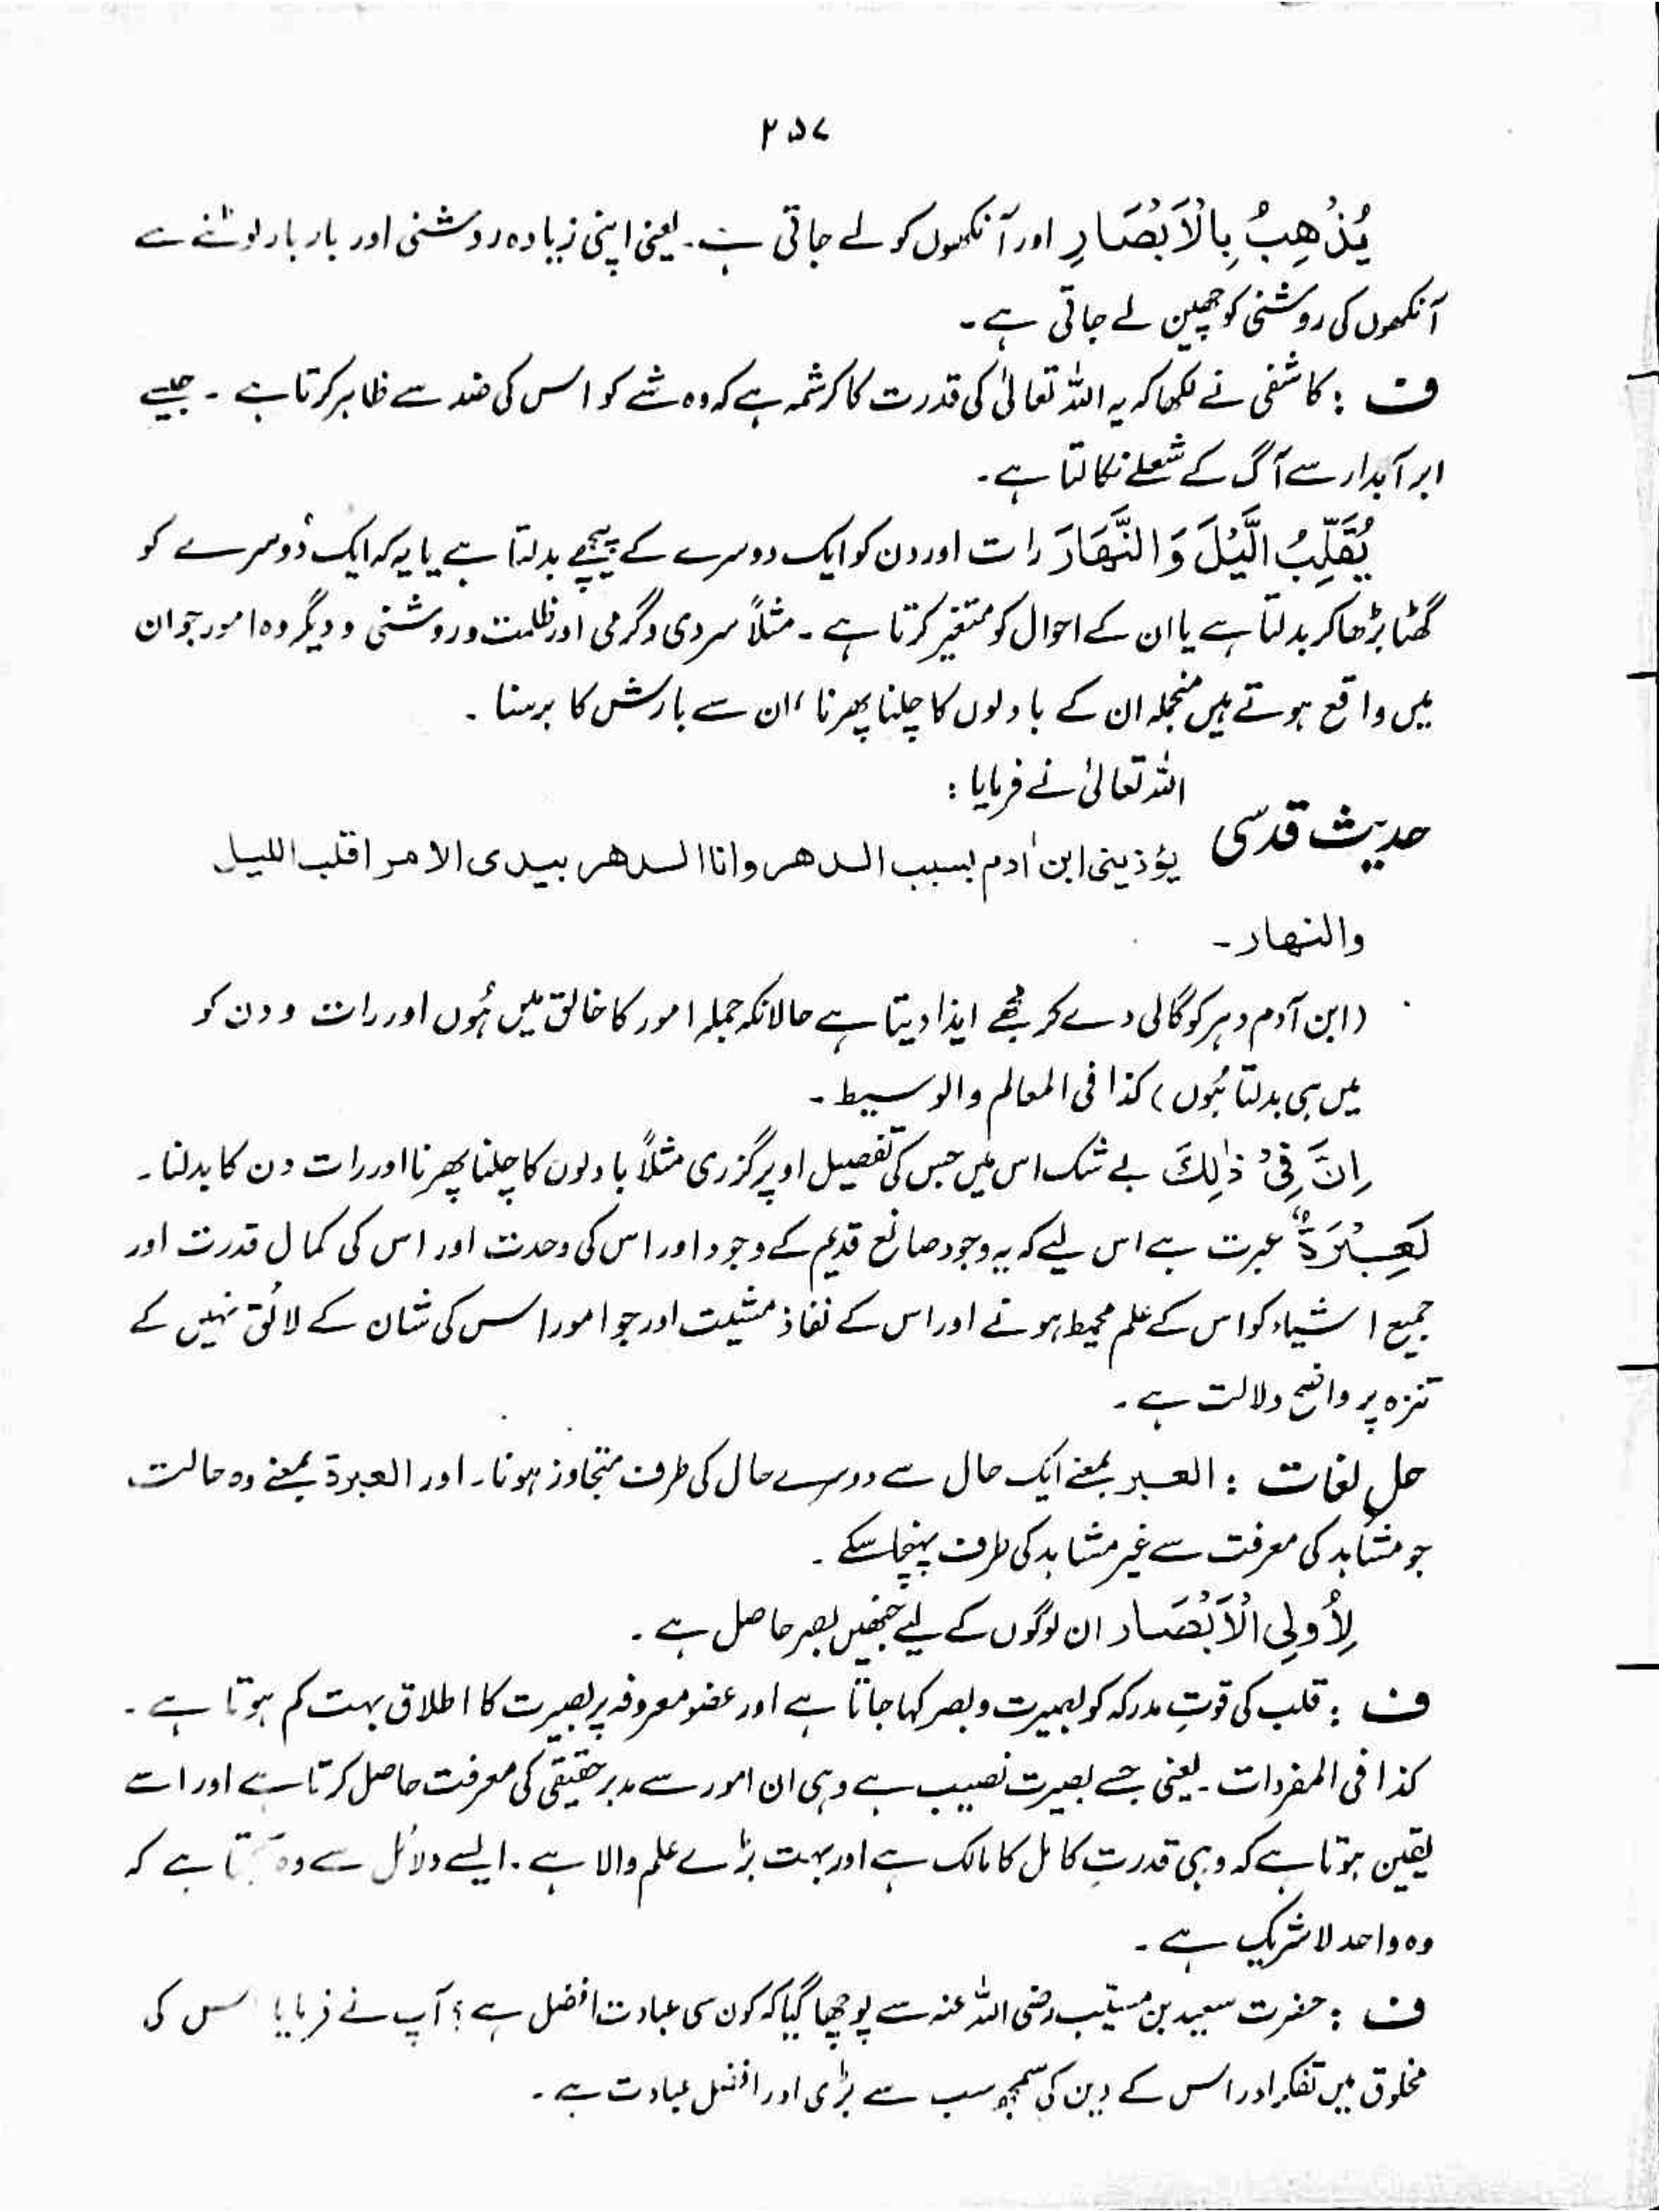 ۲۵۷
یُذْهِبُ بِالْاَبْصَارِ اور آنکھوں کو لے جاتی ہے۔ یعنی اپنی زیادہ روشنی اور بار بار لوٹنے سے
آنکھوں کی روشنی کو چھین لے جاتی ہے۔
ف : کاشفی نے لکھا کہ یہ اللہ تعالیٰ کی قدرت کا کرشمہ ہے کہ وہ شے کو اس کی ضد سے ظاہر کرتا ہے ۔ جیسے
ابر آبدار سے آگ کے شعلے نکالتا ہے۔
یُقَلِّبُ الَّیْلَ وَ النَّهَارَ رات اور دن کو ایک دوسرے کے پیچھے بدلتا ہے یا یہ کہ ایک دُوسرے کو
گھٹا بڑھا کر بدلتا ہے یا ان کے احوال کو متغیر کرتا ہے ۔ مثلاً سردی و گرمی اور ظلمت و روشنی و دیگر وہ امور جو ان
میں واقع ہوتے ہیں منجملہ ان کے بادلوں کا چلنا پھرنا ، ان سے بارش کا برسنا ۔
اللہ تعالیٰ نے فرمایا :
حدیث قدسی یؤذینی ابن اٰدم بسبب الدھر وانا الدھر بیدی الامر اقلب اللیل
والنھار ۔
(ابن آدم دہر کو گالی دے کر مجھے ایذا دیتا ہے حالانکہ جملہ امور کا خالق میں ہُوں اور رات و دن کو
میں ہی بدلتا ہُوں) کذا فی المعالم والوسیط ۔
اِنَّ فِیْ ذٰلِكَ بے شک اس میں جس کی تفصیل اوپر گزری مثلاً بادلوں کا چلنا پھرنا اور رات دن کا بدلنا ۔
لَعِبْرَةً عبرت ہے اس لیے کہ یہ وجود صانع قدیم کے وجود اور اس کی وحدت اور اس کی کمال قدرت اور
جمیع اشیاء کو اس کے علم محیط ہونے اور اس کے نفاذ مشیت اور جو امور اس کی شان کے لائق نہیں کے
تنزہ پر واضح دلالت ہے ۔
حل لغات : العبر بمعنے ایک حال سے دوسرے حال کی طرف متجاوز ہونا ۔ اور العبرۃ بمعنے وہ حالت
جو مشاہد کی معرفت سے غیر مشاہد کی طرف پہنچا سکے ۔
لِاُولِی الْاَبْصَار ان لوگوں کے لیے جنھیں بصر حاصل ہے ۔
ف : قلب کی قوتِ مدرکہ کو بصیرت و بصر کہا جاتا ہے اور عضو معروفہ پر بصیرت کا اطلاق بہت کم ہوتا ہے ۔
کذا فی المفردات ۔ یعنی جسے بصیرت نصیب ہے وہی ان امور سے مدبر حقیقی کی معرفت حاصل کرتا ہے اور اسے
یقین ہوتا ہے کہ وہی قدرتِ کامل کا مالک ہے اور بہت بڑے علم والا ہے ۔ ایسے دلائل سے وہ ہے کہ
وہ واحد لاشریک ہے ۔
ف : حضرت سعید بن مسیّب رضی اللہ عنہ سے پوچھا گیا کہ کون سی عبادت افضل ہے ؟ آپ نے فرمایا اس کی
مخلوق میں تفکر اور اس کے دین کی سمجھ سب سے بڑی اور افضل عبادت ہے ۔